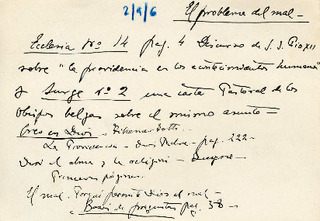 2/9/6
El problema del mal -
Ecclesia Nº 14 pag. 4 Discurso de S.S. Pio XII
sobre "la providencia en los acontecimientos humanos"
y Surge nº 2 una carta Pastoral de los
Obispos belgas sobre el mismo asunto -
Creo en Dios -
La Providencia - pag. 222 -
Dios el alma y la religion -
Primeras páginas.
El mal. Porqué permite Dios el mal -
"Buzón de preguntas pag. 38 -